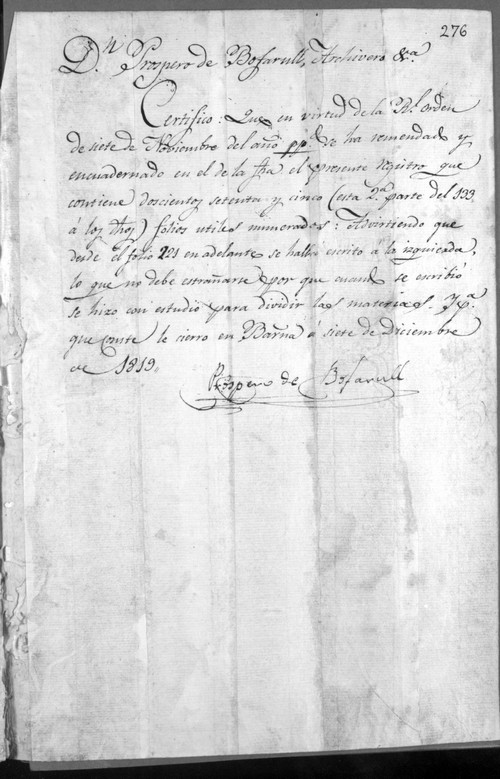 276
Dn. Prospero de Bofarull, Archivero &a.
Certifico: Que en virtud de la Rl. orden
de siete de Noviembre del año pp.º se ha remendado y
encuadernado en el de la fha el presente registro que
contiene doscientos setenta y cinco (esta 2ª parte del 193
á los fhos) folios utiles numerados: Advirtiendo que
desde el folio 221 en adelante se halla escrito á la izquierda,
lo que no debe estrañarse por que cuando se escribió
se hizo con estudio para dividir las materias. Ypª.
que conste le cierro en Barna á siete de Diciembre
de 1819.
Prospero de Bofarull